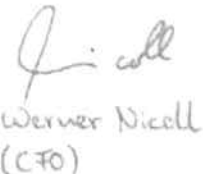 Werner Nicoll
(CFO)